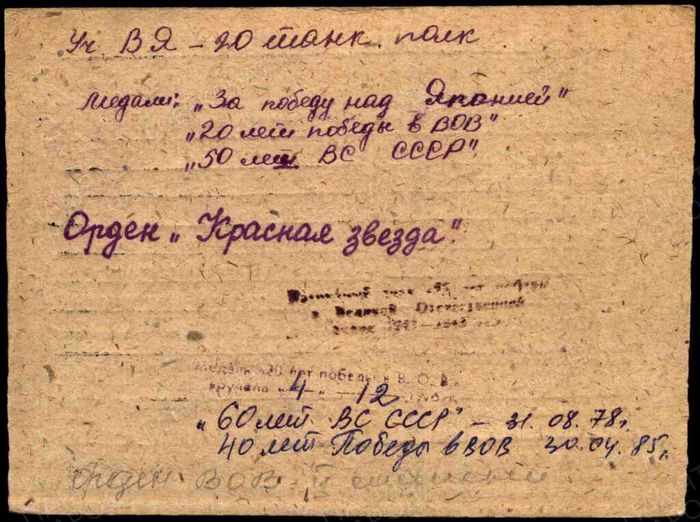 Уч. В Я – 20 танк. полк
Медали: „За победу над Японией"
„20 лет победы в ВОВ"
„50 лет ВС СССР"
Орден „Красная звезда".
знак 25 лет победы
в Великой Отечественной
войне 1941–1945
Медаль „30 лет победы в В. О. В.
вручена „4" – 12
„60 лет ВС СССР" – 31.08.78г.
40 лет Победы в ВОВ 30.04.85г.
Орден ВОВ – II